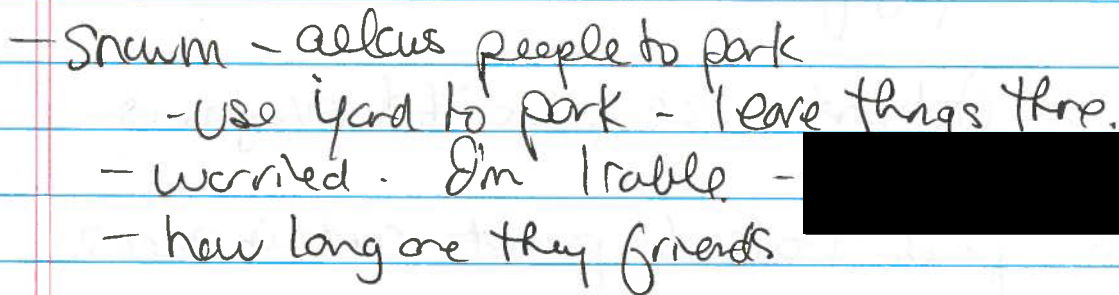 - allows people to park
- use yard to park - leave things there.
- worried. I'm liable -
- how long are they friends